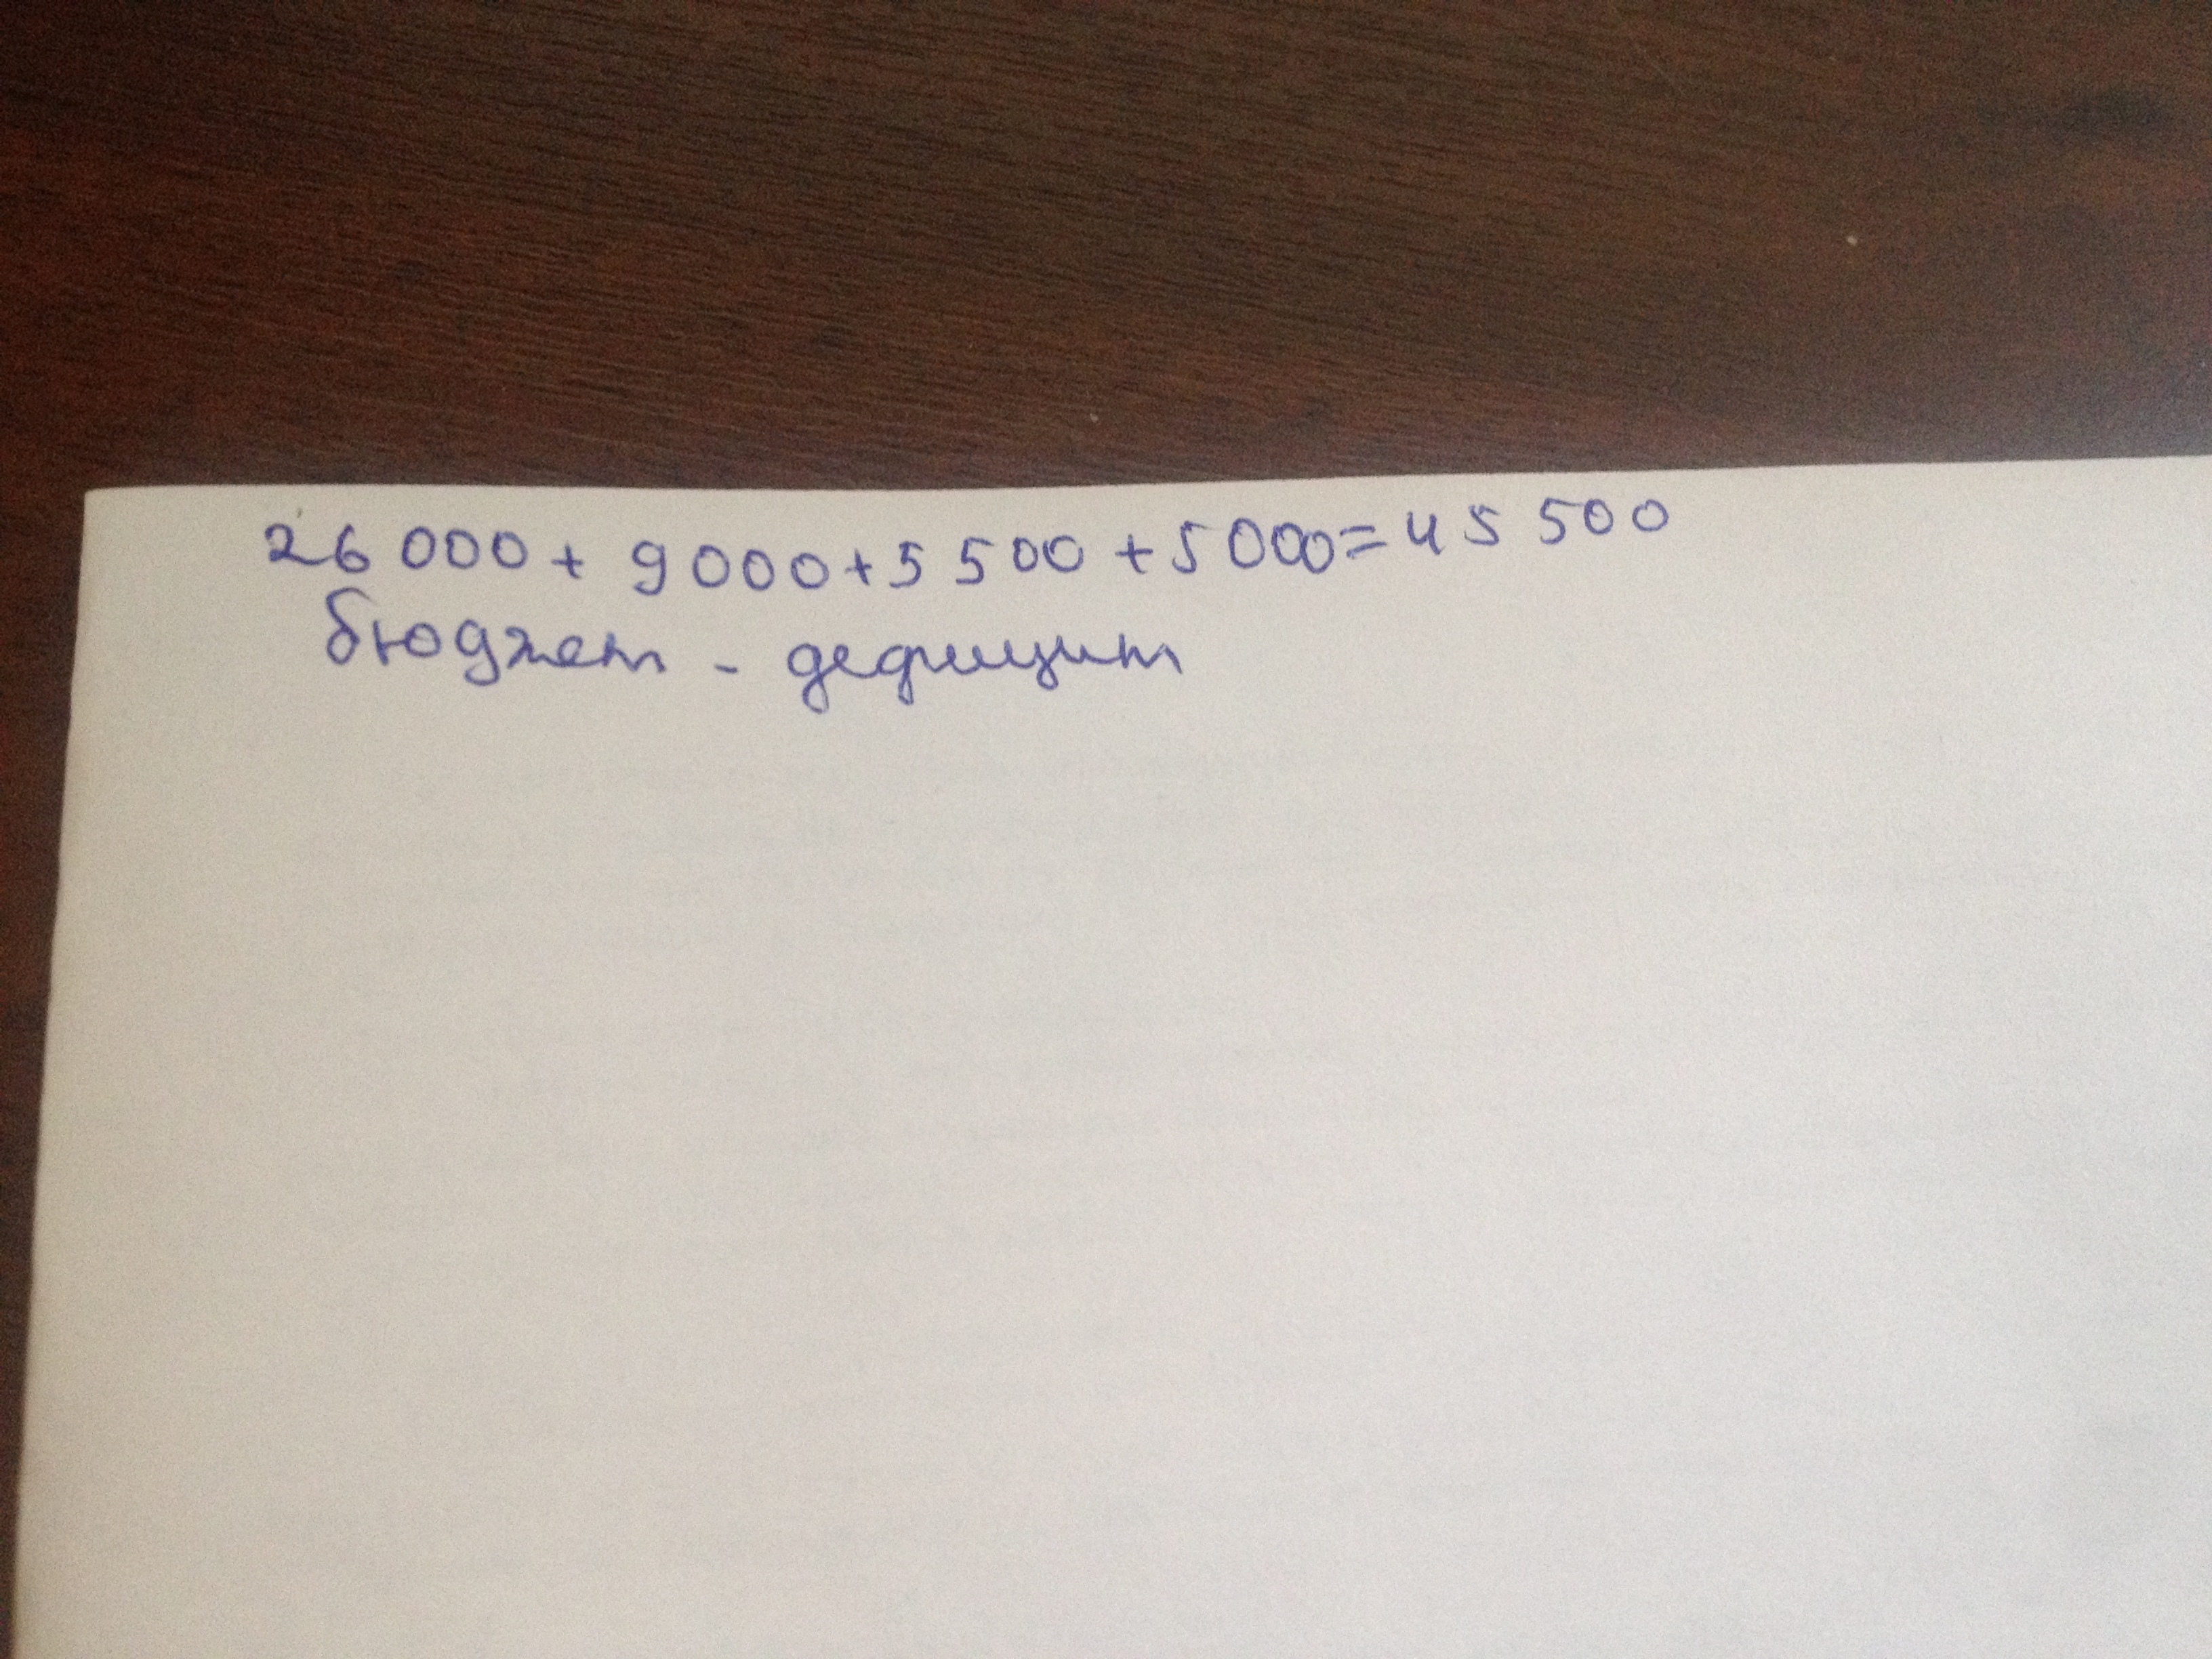 26 000 + 9 000 + 5 500 + 5 000 = 45 500
бюджет - дефицит